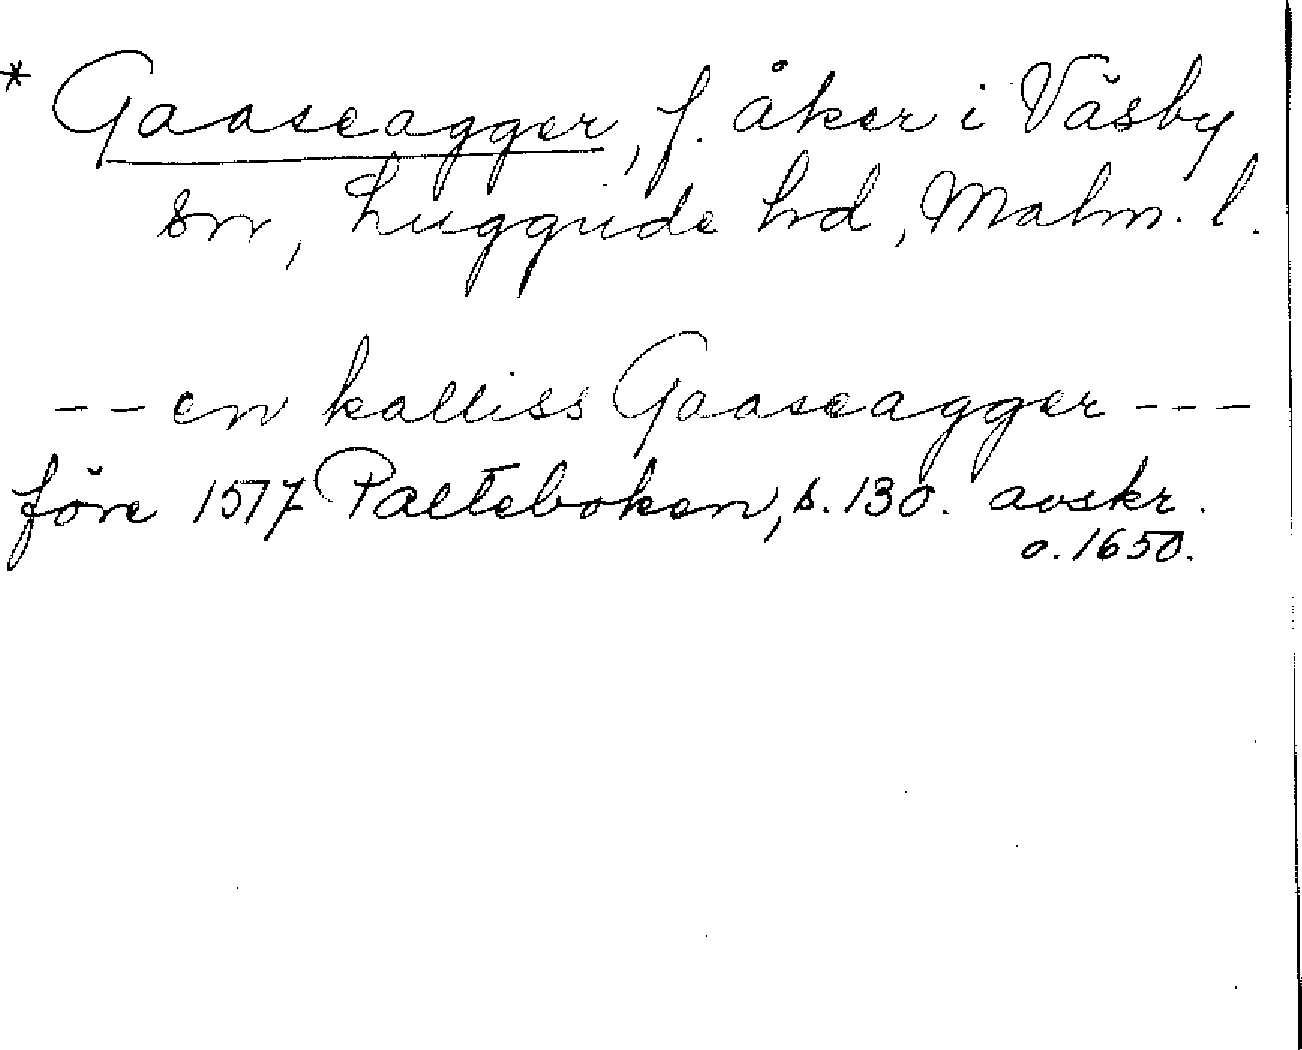 * Gaaseagger, f. åker i Väsby
sn, Luggude hd, Malm. l.
-- en kalliss Gaaseagger ---
före 1577 Palteboken, s. 130. avskr.
o. 1650.